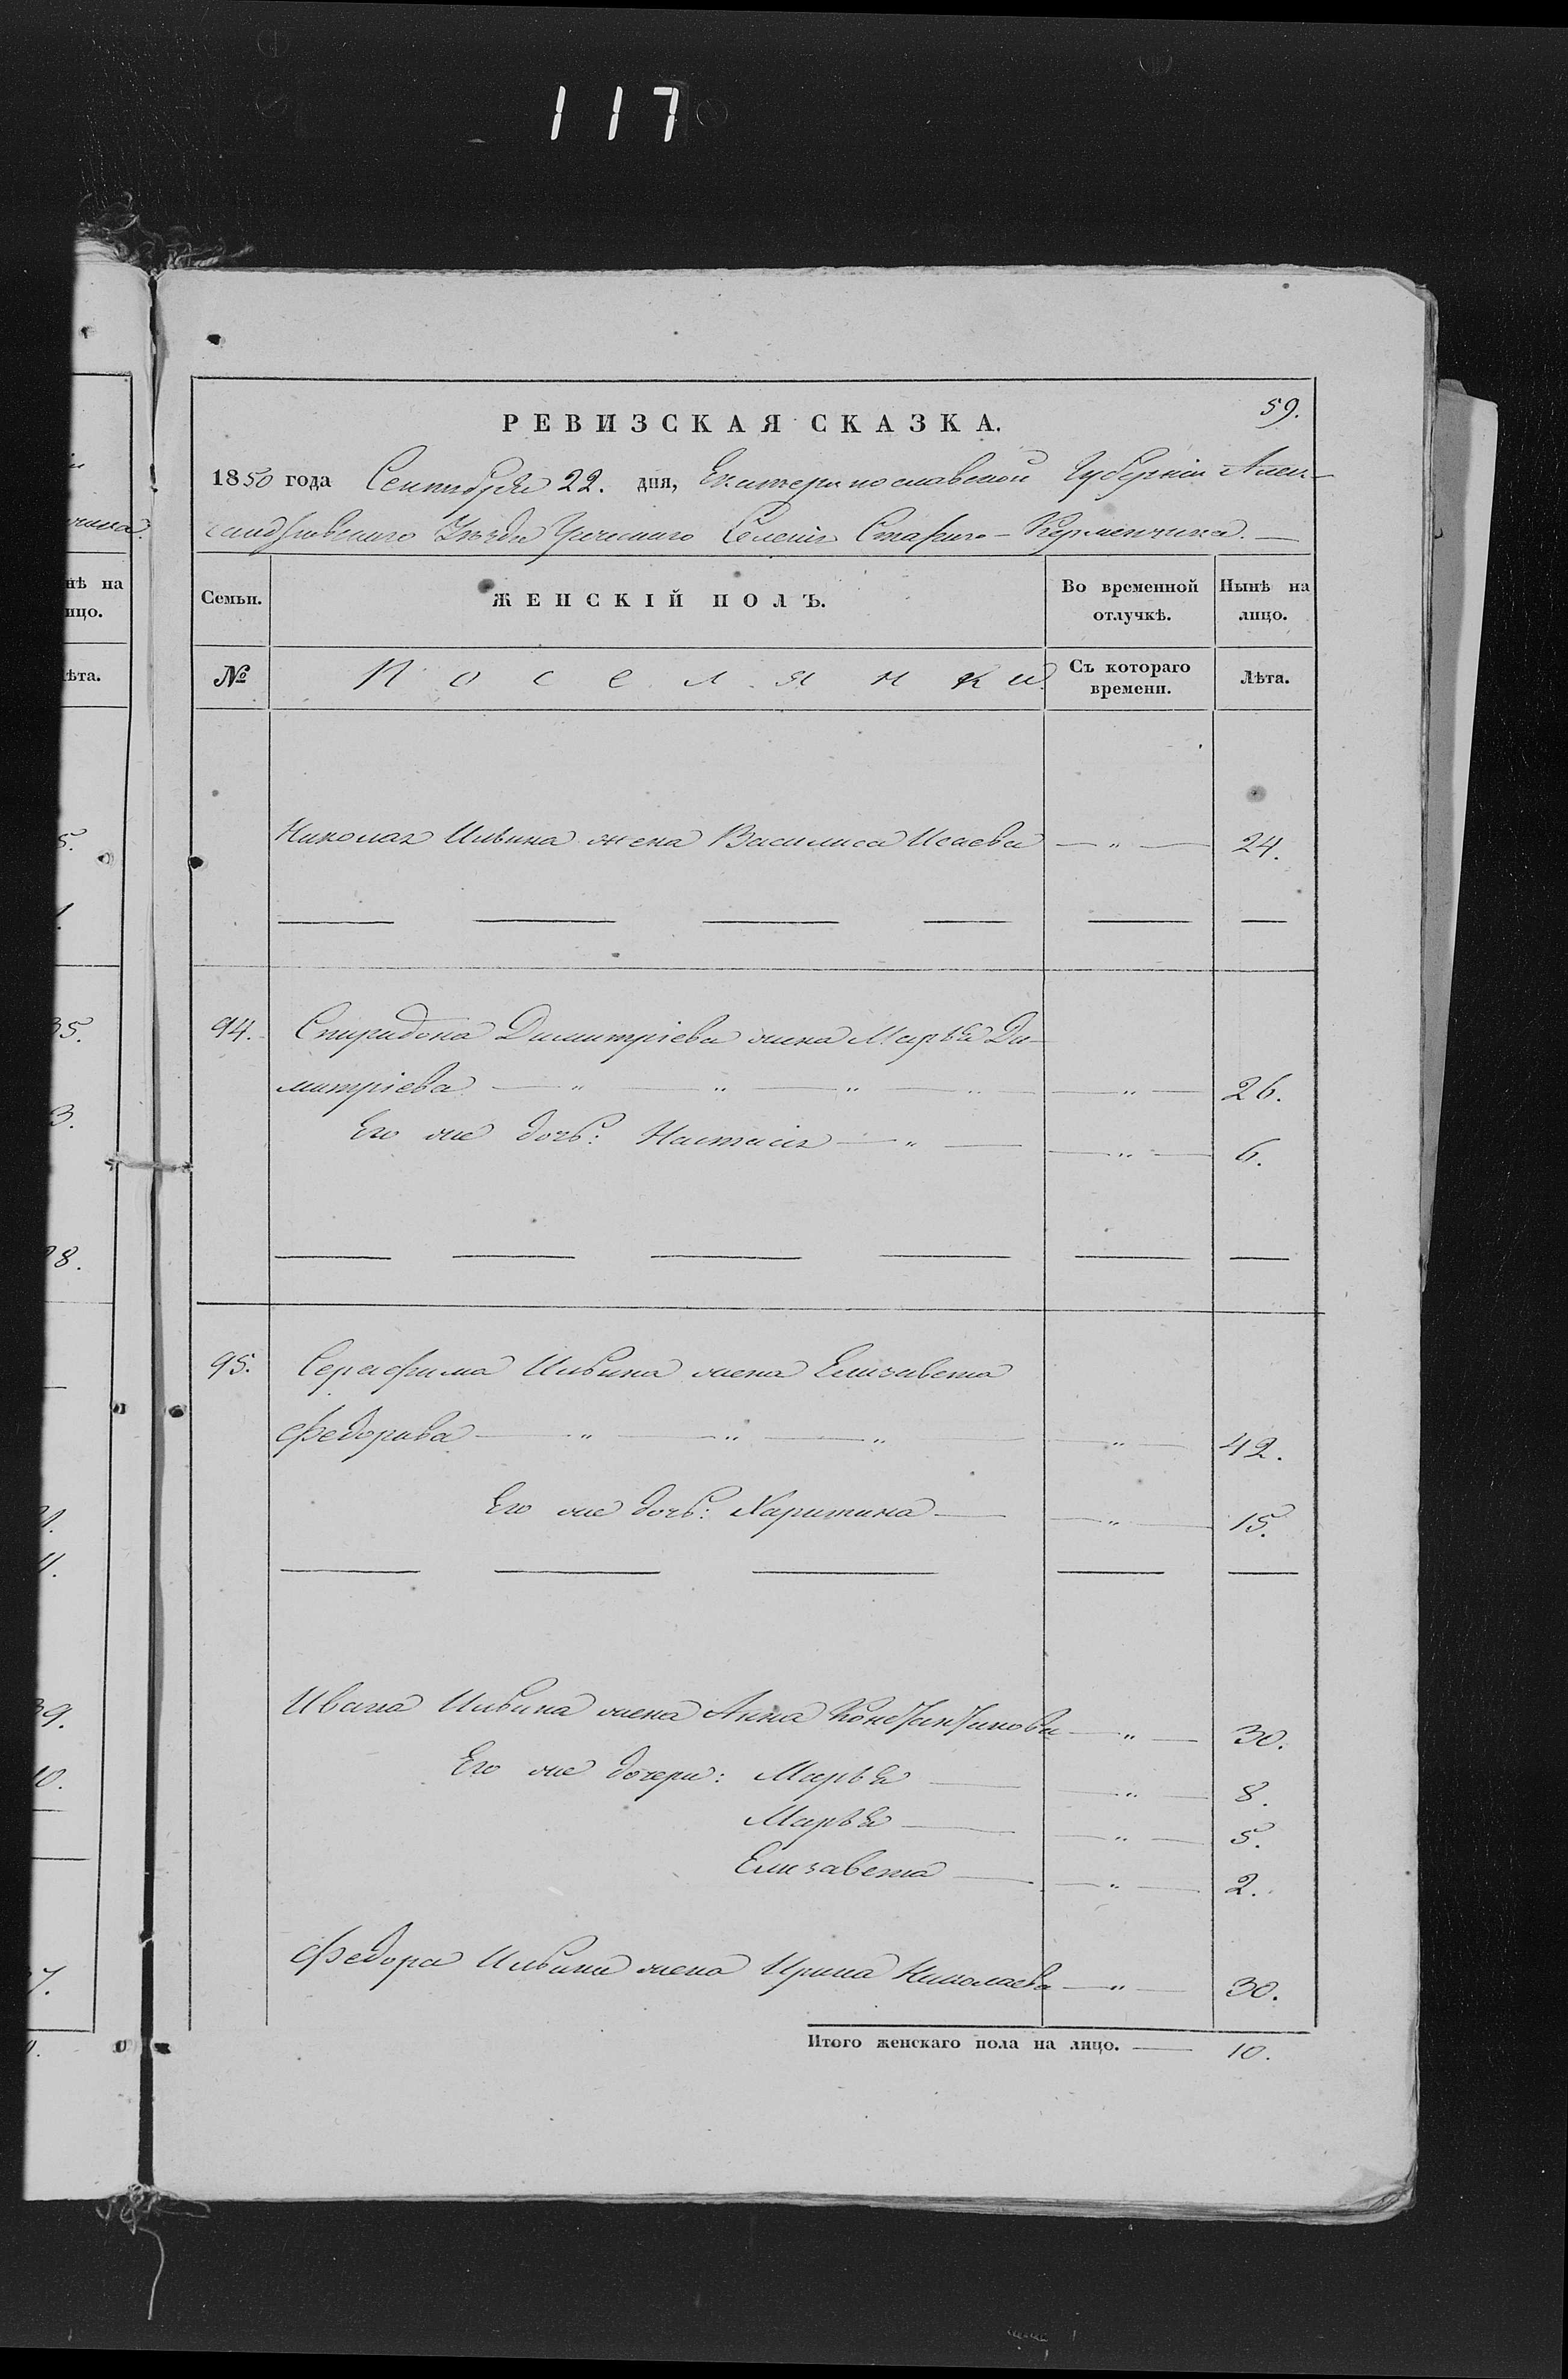 117
59.
РЕВИЗСКАЯ СКАЗКА.
1850 года Сентября 22. дня, Екатеринославской Губерніи Алек-
сандровскаго Уѣзда Греческаго Селенія Стараго-Керменчика.
Семьи. ЖЕНСКІЙ ПОЛЪ. Во временной отлучкѣ. Нынѣ на лицо.
№ Поселянки. Съ котораго времени. Лѣта.
Николая Ильина жена Василиса Исаева — " — 24.
94. Спиридона Димитріева жена Марья Ди-
митріева — " — " — " — " — " — 26.
Его же дочь: Настасія — " — — " — 6.
95. Серафима Ильина жена Елизавета
Федорова — " — " — " — " — 42.
Его же дочь: Харитина — — " — 15.
Ивана Ильина жена Анна Константинова — " — 30.
Его же дочери: Марья — — " — 8.
Марья — — " — 5.
Елизавета — — " — 2.
Федора Ильина жена Ирина Николаева — " — 30.
Итого женскаго пола на лицо. — 10.
нѣ на
ицо.
ѣта.
5.
35.
3.
8.
39.
10.
7.